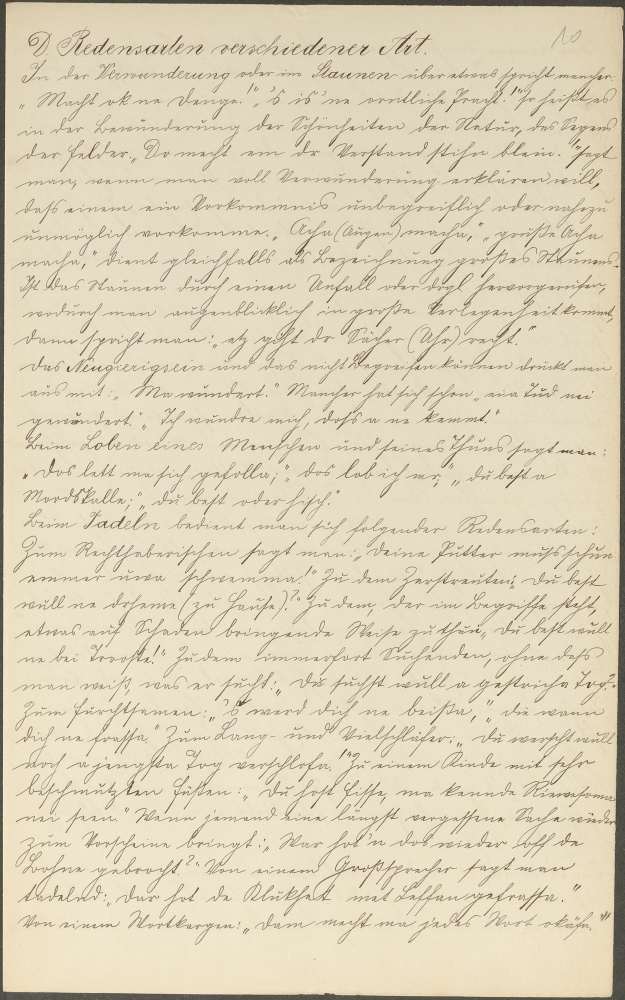 10
D Redensarten verschiedener Art.
In der Verwunderung oder im Staunen über etwas spricht mancher:
„Macht ok ne Denge!“ „'s is 'ne orntliche Pracht!“ So heißt es
in der Bewunderung der Schönheiten der Natur, des Segens
der Felder. „Do mecht em dr Verstand stihn blein.“ sagt
man, wenn man voll Verwunderung erklären will,
daß einem ein Vorkommnis unbegreiflich oder nahezu
unmöglich vorkomme. „Acha (Augen) macha,“ „grüße Acha
macha,“ dient gleichfalls als Bezeichnung großes Staunens.
Ist das Staunen durch einen Unfall oder drgl. hervorgerufen,
wodurch man augenblicklich in große Verlegenheit kommt,
dann spricht man: „etz giht dr Sächer (Uhr) racht.“
Das Neugierigsein und das nicht Begreifen können drückt man
aus mit: „Ma wundert.“ Mancher hat sich schon „ein Tud nei
gewundert.“ „Ich wundre mich, doß a ne kemmt.“
Beim Loben eines Menschen und seines Thuns sagt man:
„dos lett ma sich gefolla;“ „dos lob ich mr,“ „du best a
Mordskalle;“ „du best oder hisch.“
Beim Tadeln bedient man sich folgender Redensarten:
Zum Rechthaberischen sagt man: „Deine Putter muß schun
emmer uwa schwemma.“ Zu dem Zerstreuten: „Du best
wull ne drheme (zu Hause)?“ Zu dem, der im Begriffe steht,
etwas auf Schaden bringende Weise zu thun, „Du best wull
ne bei Trooste!“ Zu dem immerfort Suchenden, ohne daß
man weiß, was er sucht: „Du suchst wull a gestricha Tog?“
Zum Furchtsamen: „'s werd dich ne beißa,“ „die wann
dich ne frassa.“ Zum Lang- und Vielschläfer: „Du werscht wull
noch a jengsta Tog verschlofa!“ Zu einem Kinde mit sehr
beschmutzten Füßen: „Du host Fisse, ma kennde
nei seen.“ Wenn jemand eine längst vergessene Sache wieder
zum Vorscheine bringt: „War hot 'n dos wieder off de
Bohne gebrocht?“ Von einem Großsprecher sagt man
tadelnd: „Dar hot de Klukheet met Leffan gefrassa.“
Von einem Wortkargen: „Dam mecht ma jedes Wort okäfa.“